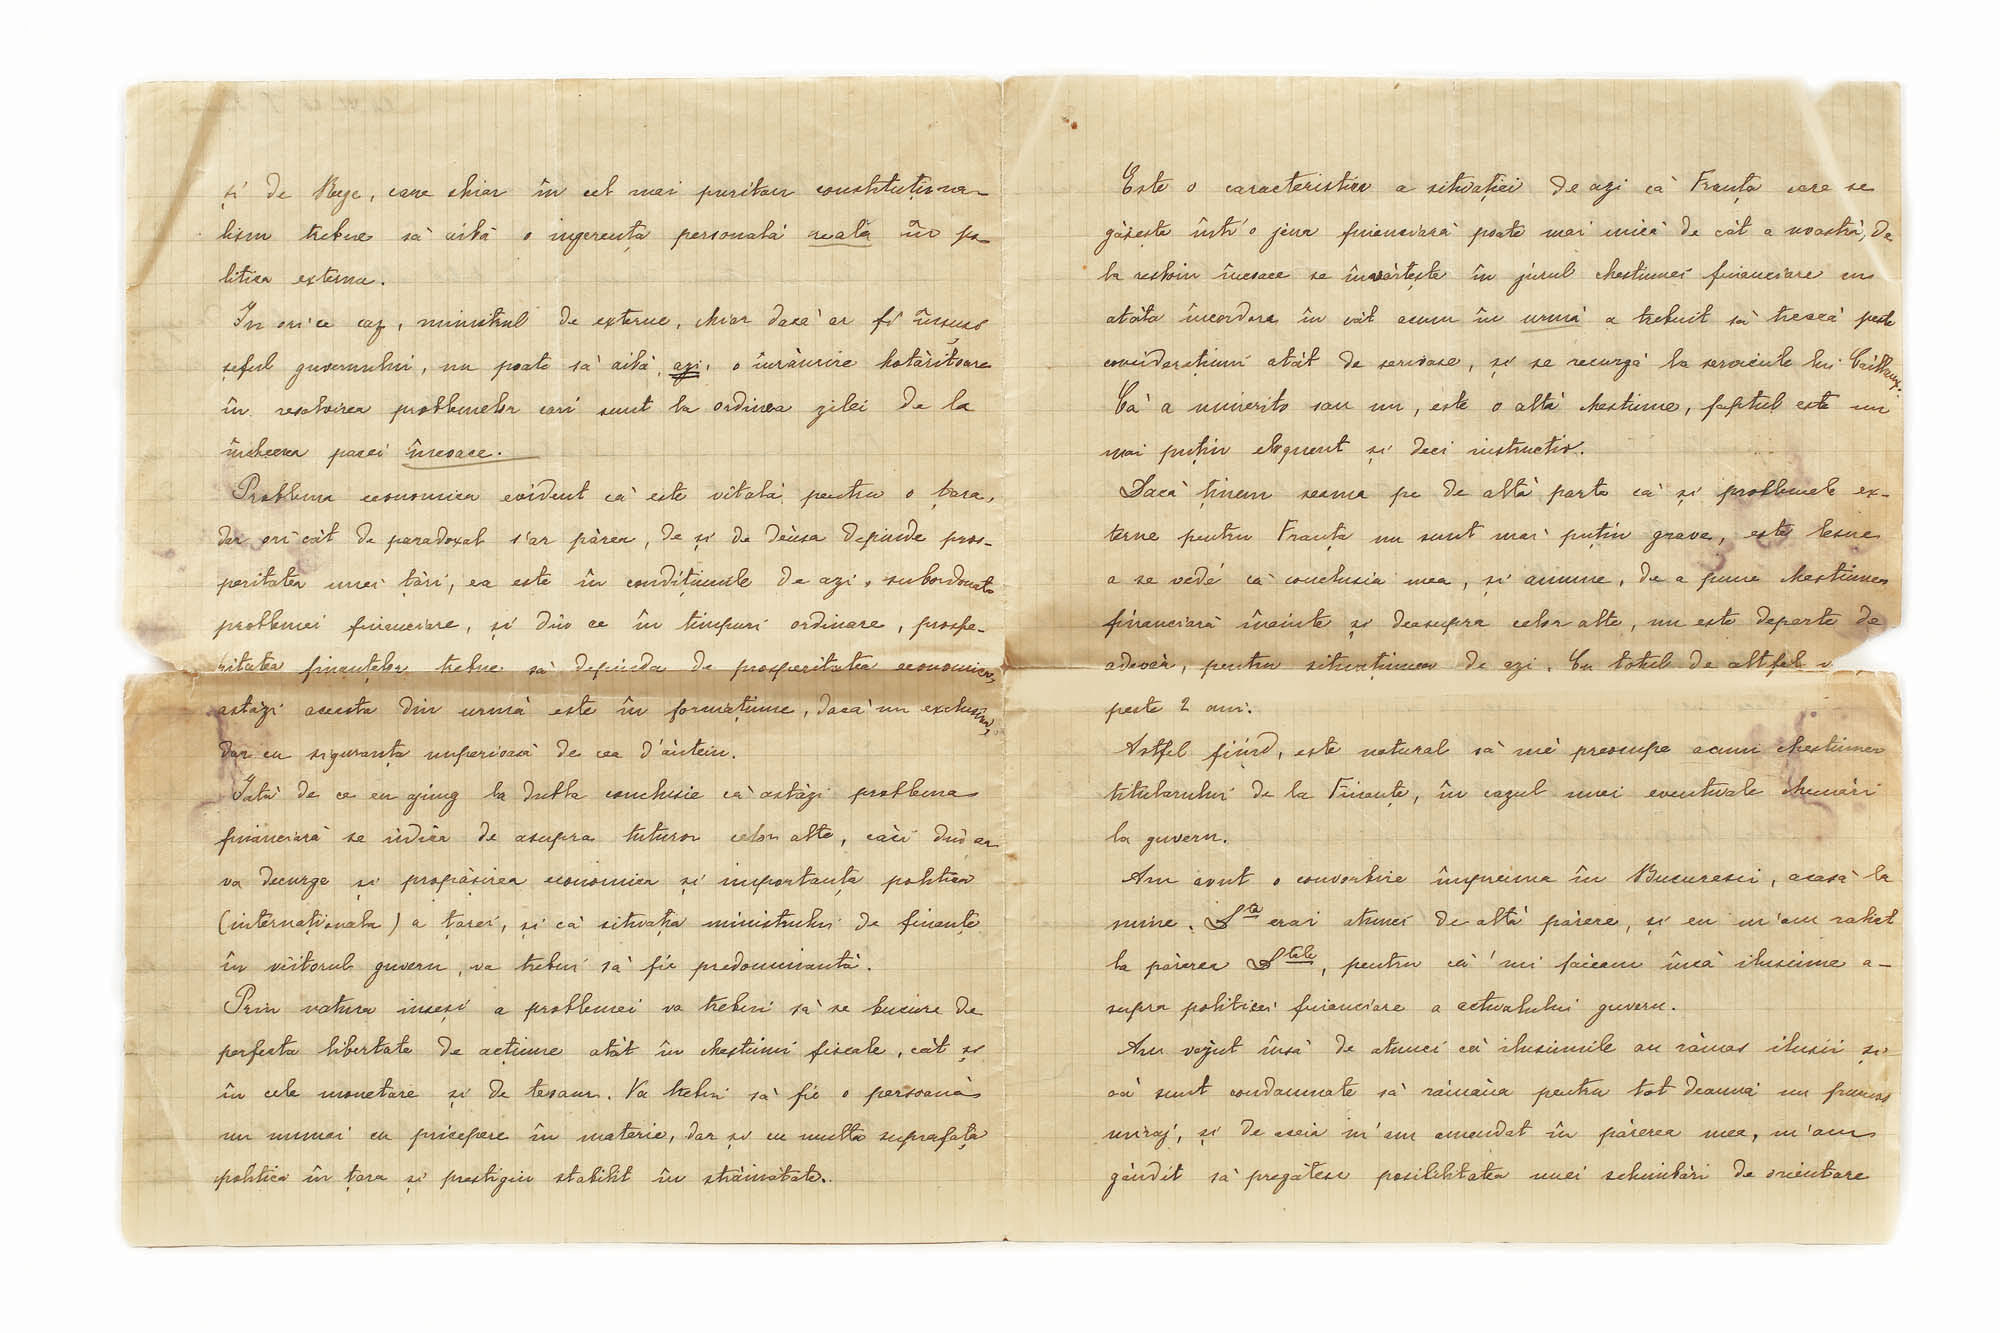 și de Rege, care chiar în cel mai puritan constituționa-
lism trebue să aibă o ingerența personală reală în po-
litica externa.
In ori ce caz, ministrul de externe, chiar dacă ar fi însuși
șeful guvernului, nu poate să aibă, azi, o înrâurire hotărîtoare
în resolvirea problemelor cari sunt la ordinea zilei de la
încheerea pacei încoace.
Problema economica evident că este vitală pentru o țara,
dar ori cât de paradoxal s'ar părea, de și de dânsa depinde pros-
peritatea unei țări, ea este în condițiunile de azi, subordonata
problemei financiare, și din ce în timpuri ordinare, prospe-
ritatea finanțelor trebue să depinda de prosperitatea economica,
astăzi aceasta din urmă este în formațiune, dacă nu exclusiva,
dar cu siguranța imperioasă de cea d'ântein.
Iată de ce eu ajung la dubla conclusie că astăzi problema
financiară se ridica de asupra tutuor celor alte, căci din ea
va decurge și propășirea economica și importanța politica
(internațională) a țarei, și că situația ministrului de finanțe
în viitorul guvern, va trebui să fie predominantă.
Prin natura inseși a problemei va trebui să se bucure de
perfecta libertate de acțiune atât în chestiuni fiscale, cât și
în cele monetare și de tesaur. Va trebui să fie o persoană
nu numai cu pricepere în materie, dar și cu multa suprafața
politica în țara și prestigiu stabilit în străinătate.
Este o caracteristica a situației de azi că Franța care se
găsește într'o jena financiară poate mai mică de cât a noastră, de
la resboiu încoace se învârtește în jurul chestiunei financiare cu
atâta încordare în cât acum în urmă a trebuit să treacă peste
considerațiuni atât de serioase, și se recurgă la serviciile lui Caillaux.
Că a nimerit-o sau nu, este o altă chestiune, faptul este nu
mai puțin eloquent și deci instructiv.
Dacă ținem seama pe de altă parte că și problemele ex-
terne pentru Franța nu sunt mai puțin grave, este lesne
a se vedé că conclusia mea, și anume, de a pune chestiunea
financiară înainte și deasupra celor alte, nu este departe de
adevăr, pentru situațiunea de azi. Cu totul de altfel
peste 2 ani.
Astfel fiind, este natural să mĕ preocupe acum chestiunea
titularului de la Finanțe, în cazul unei eventuale chemări
la guvern.
Am avut o convorbire împreuna în Bucuresci, acasă la
mine. D-ta erai atunci de altă părere, și eu m'am raliat
la părerea D-tale, pentru că 'mi făceam încă ilusiune a-
supra politicei financiare a actualului guvern.
Am vĕzut însă de atunci că ilusiunile au rămas ilusii și
că sunt condamnate să rămăia pentru tot deauna un frumos
miraj, și de aceia m'am amendat în părerea mea, m'am
gândit să pregătesc posibilitatea unei schimbări de orientare